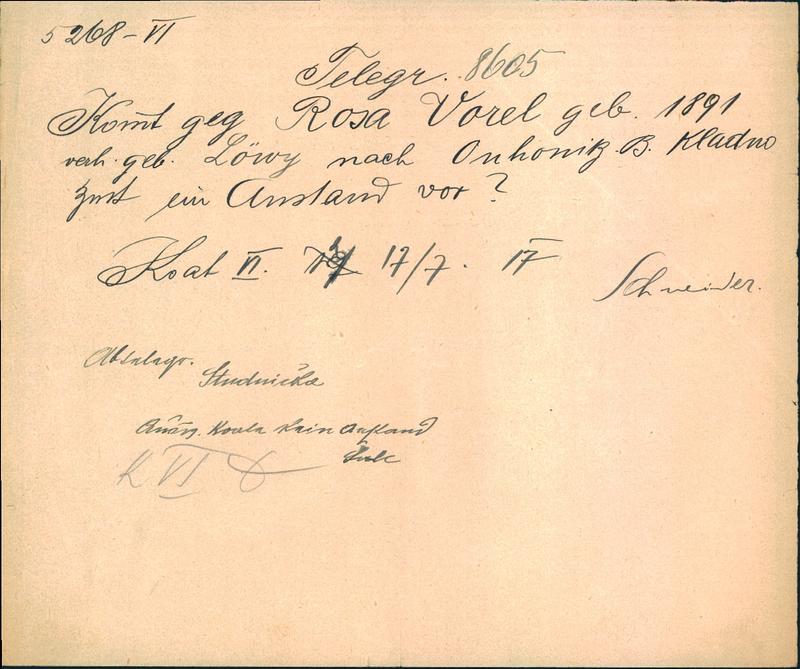 5268-VI
Telegr. 8605
Komt geg Rosa Vorel geb. 1891
verh. geb. Löwy nach Onhonitz B. Kladno
ein Anstand vor?
Koat VI. 17/7. 17
Schneider.
Studnička
kein Anstand
K VI